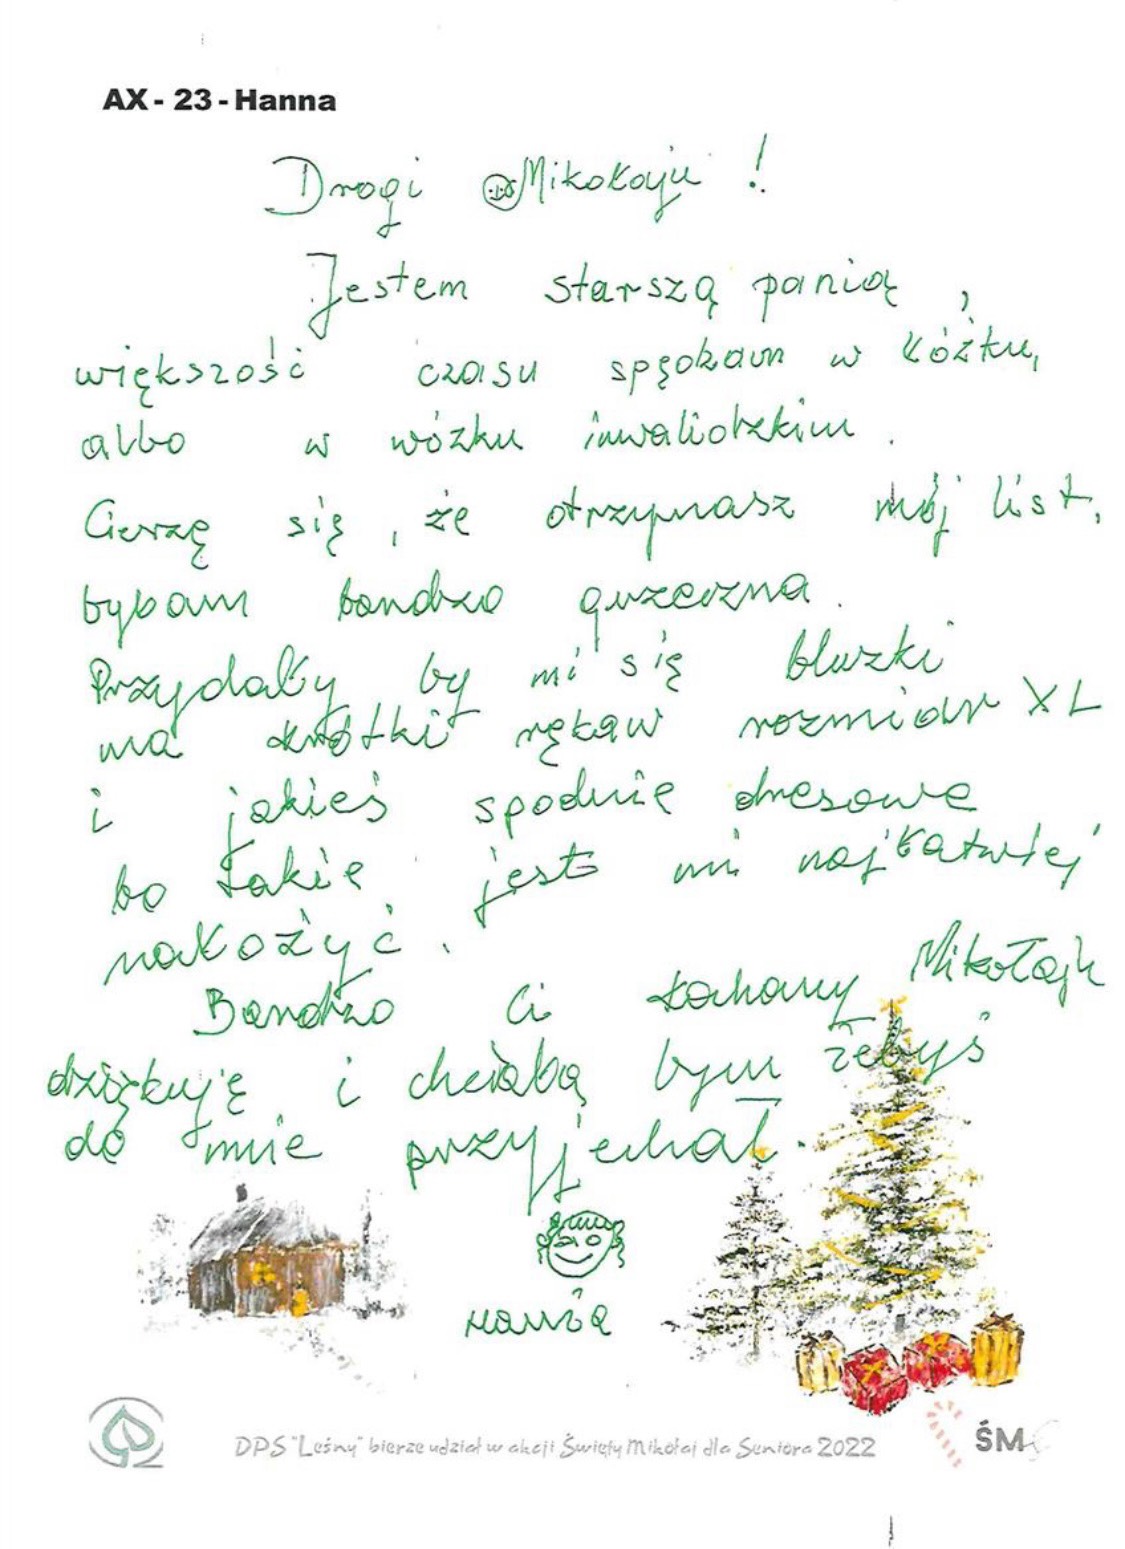 AX - 23 - Hanna
Drogi Mikołaju !
Jestem starszą panią ,
większość czasu spędzam w łóżku,
albo w wózku inwalidzkim .
Cieszę się , że otrzymasz mój list,
byłam bardzo grzeczna .
Przydały by mi się bluzki
na krótki rękaw rozmiar XL
i jakieś spodnie dresowe
bo takie jest mi najłatwiej
nałożyć .
Bardzo Ci kochany Mikołaju
dziękuję i chciała bym żebyś
do mnie przyjechał .
Hania
DPS "Leśny" bierze udział w akcji Święty Mikołaj dla Seniora 2022
ŚM